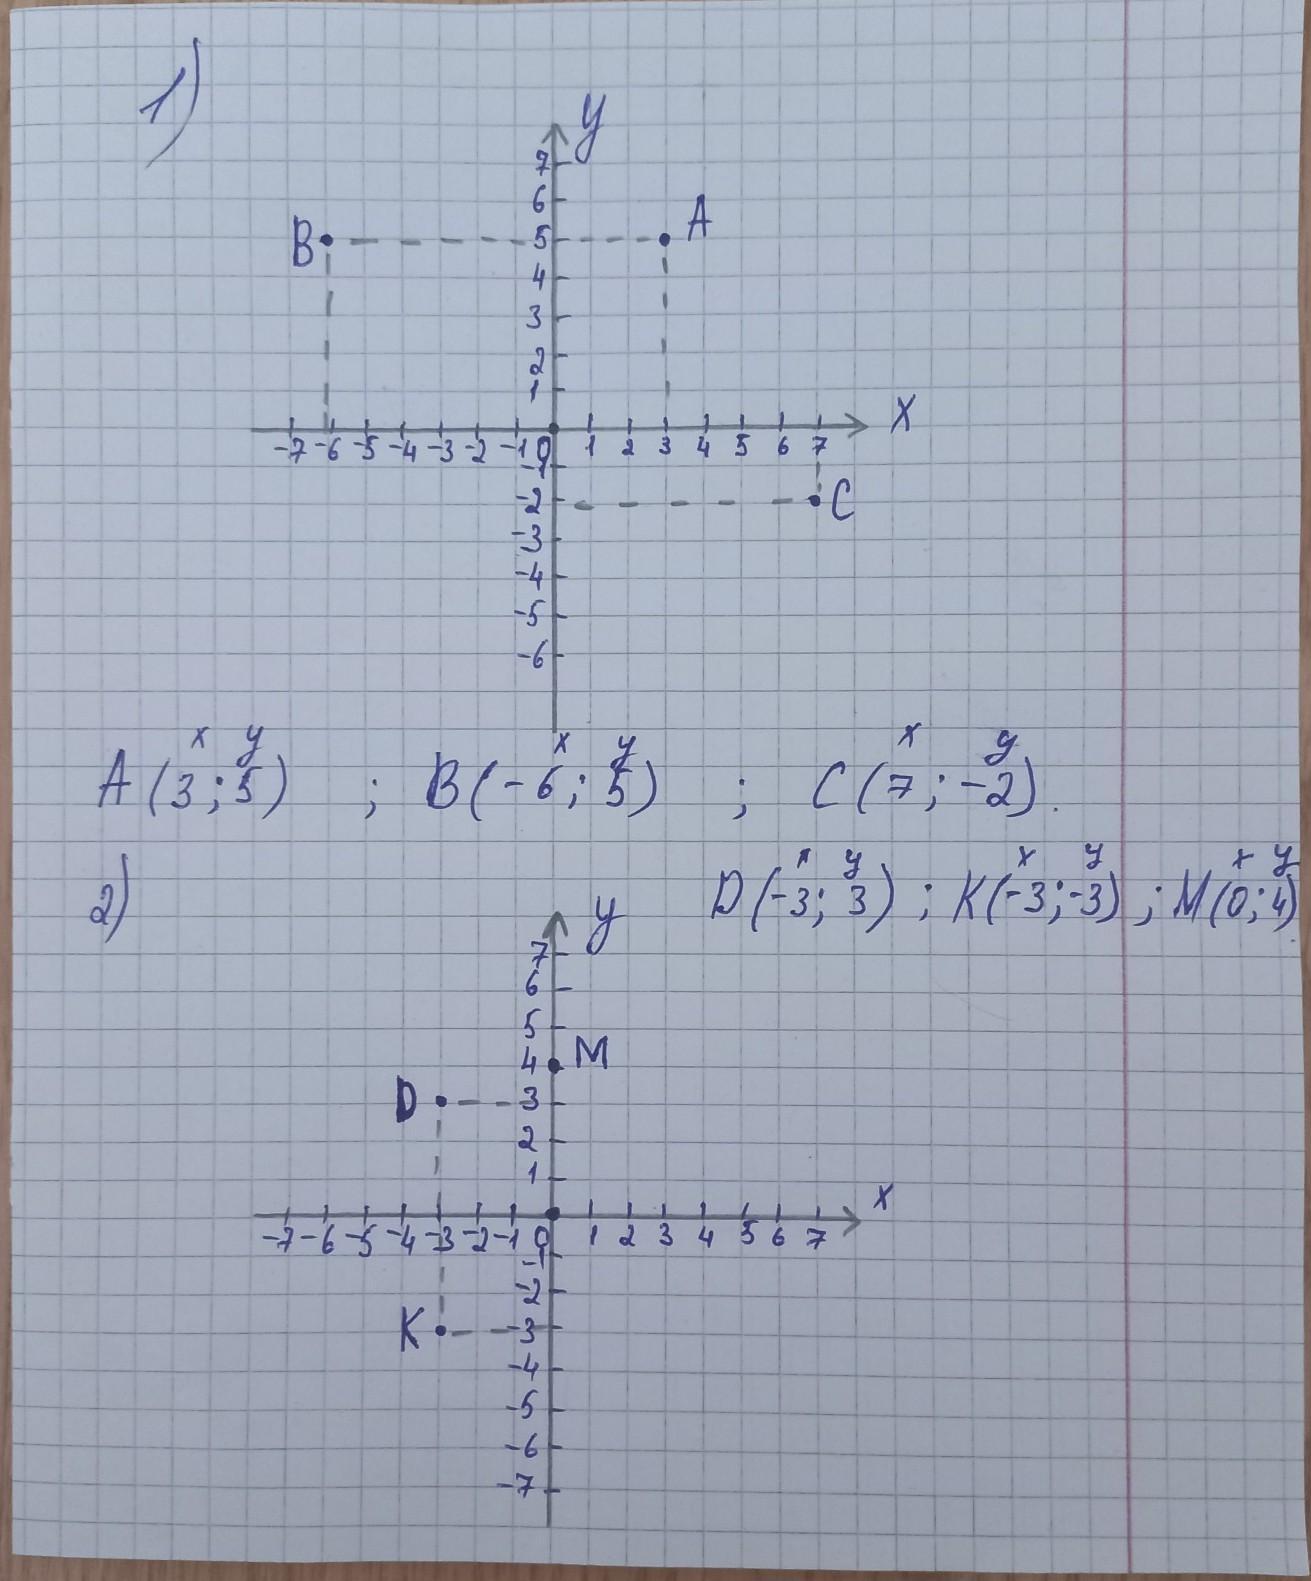 1)
y
7
6
B 5 A
4
3
2
1
-7 -6 -5 -4 -3 -2 -1 0 1 2 3 4 5 6 7 X
-1
-2 C
-3
-4
-5
-6
x y x y x y
A(3;5) ; B(-6;5) ; C(7;-2).
x y x y x y
2) D(-3;3) ; K(-3;-3) ; M(0;4)
y
7
6
5
4 M
D 3
2
1
-7 -6 -5 -4 -3 -2 -1 0 1 2 3 4 5 6 7 x
-1
-2
K -3
-4
-5
-6
-7